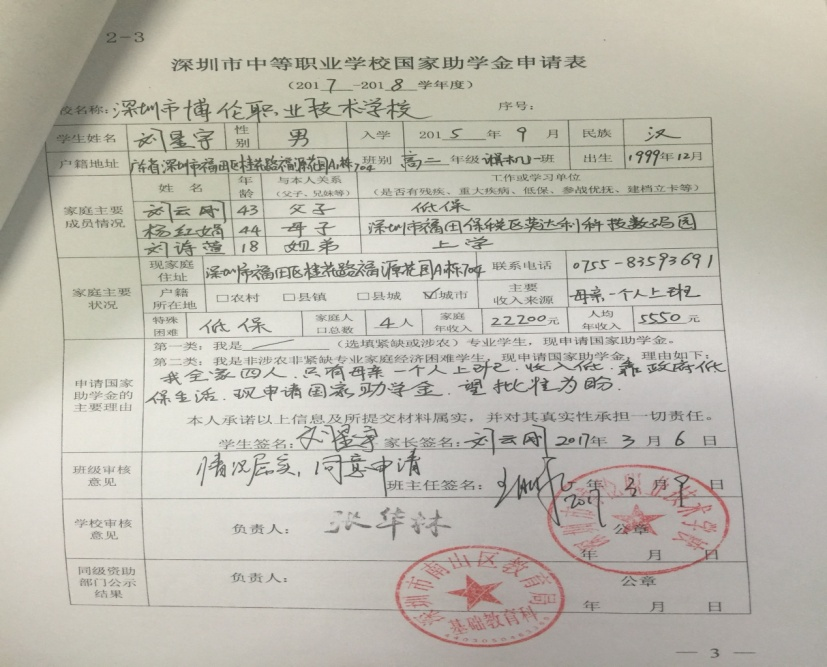 2-3
深圳市中等职业学校国家助学金申请表
(2017-2018学年度)
校名称:深圳市博伦职业技术学校 序号:
学生姓名 刘星宇 性别 男 入学 2015年9月 民族 汉
户籍地址 广东省深圳市福田区桂花路福源花园A栋704 班别 高二年级 班 出生 1999年12月
家庭主要成员情况 姓名 年龄 与本人关系(父子、兄妹等) 工作或学习单位(是否有残疾、重大疾病、低保、参战优抚、建档立卡等)
刘云 43 父子 低保
杨红娟 44 母子 深圳市福田保税区英达利科技数码园
刘诗萱 18 姐弟 上学
家庭主要状况 现家庭住址 深圳市福田区桂花路福源花园A栋704 联系电话 0755-83593691
户籍所在地 □农村 □县镇 □县城 ☑城市 主要收入来源 母亲一个人上班
特殊困难 低保 家庭人口总数 4人 家庭年收入 22200元 人均年收入 5550元
申请国家助学金的主要理由
第一类:我是 (选填紧缺或涉农)专业学生,现申请国家助学金。
第二类:我是非涉农非紧缺专业家庭经济困难学生,现申请国家助学金,理由如下:
我全家四人,只有母亲一个人上班,收入低,靠政府低
保生活.现申请国家助学金.望批准为盼.
本人承诺以上信息及所提交材料属实,并对其真实性承担一切责任。
学生签名:刘星宇 家长签名:刘云 2017年3月6日
班级审核意见 情况属实,同意申请
班主任签名: 2017年3月9日
学校审核意见 负责人: 张华林 公章
年 月 日
同级资助部门公示结果 负责人: 公章
年 月 日
深圳市南山区教育局
基础教育科
— 3 —